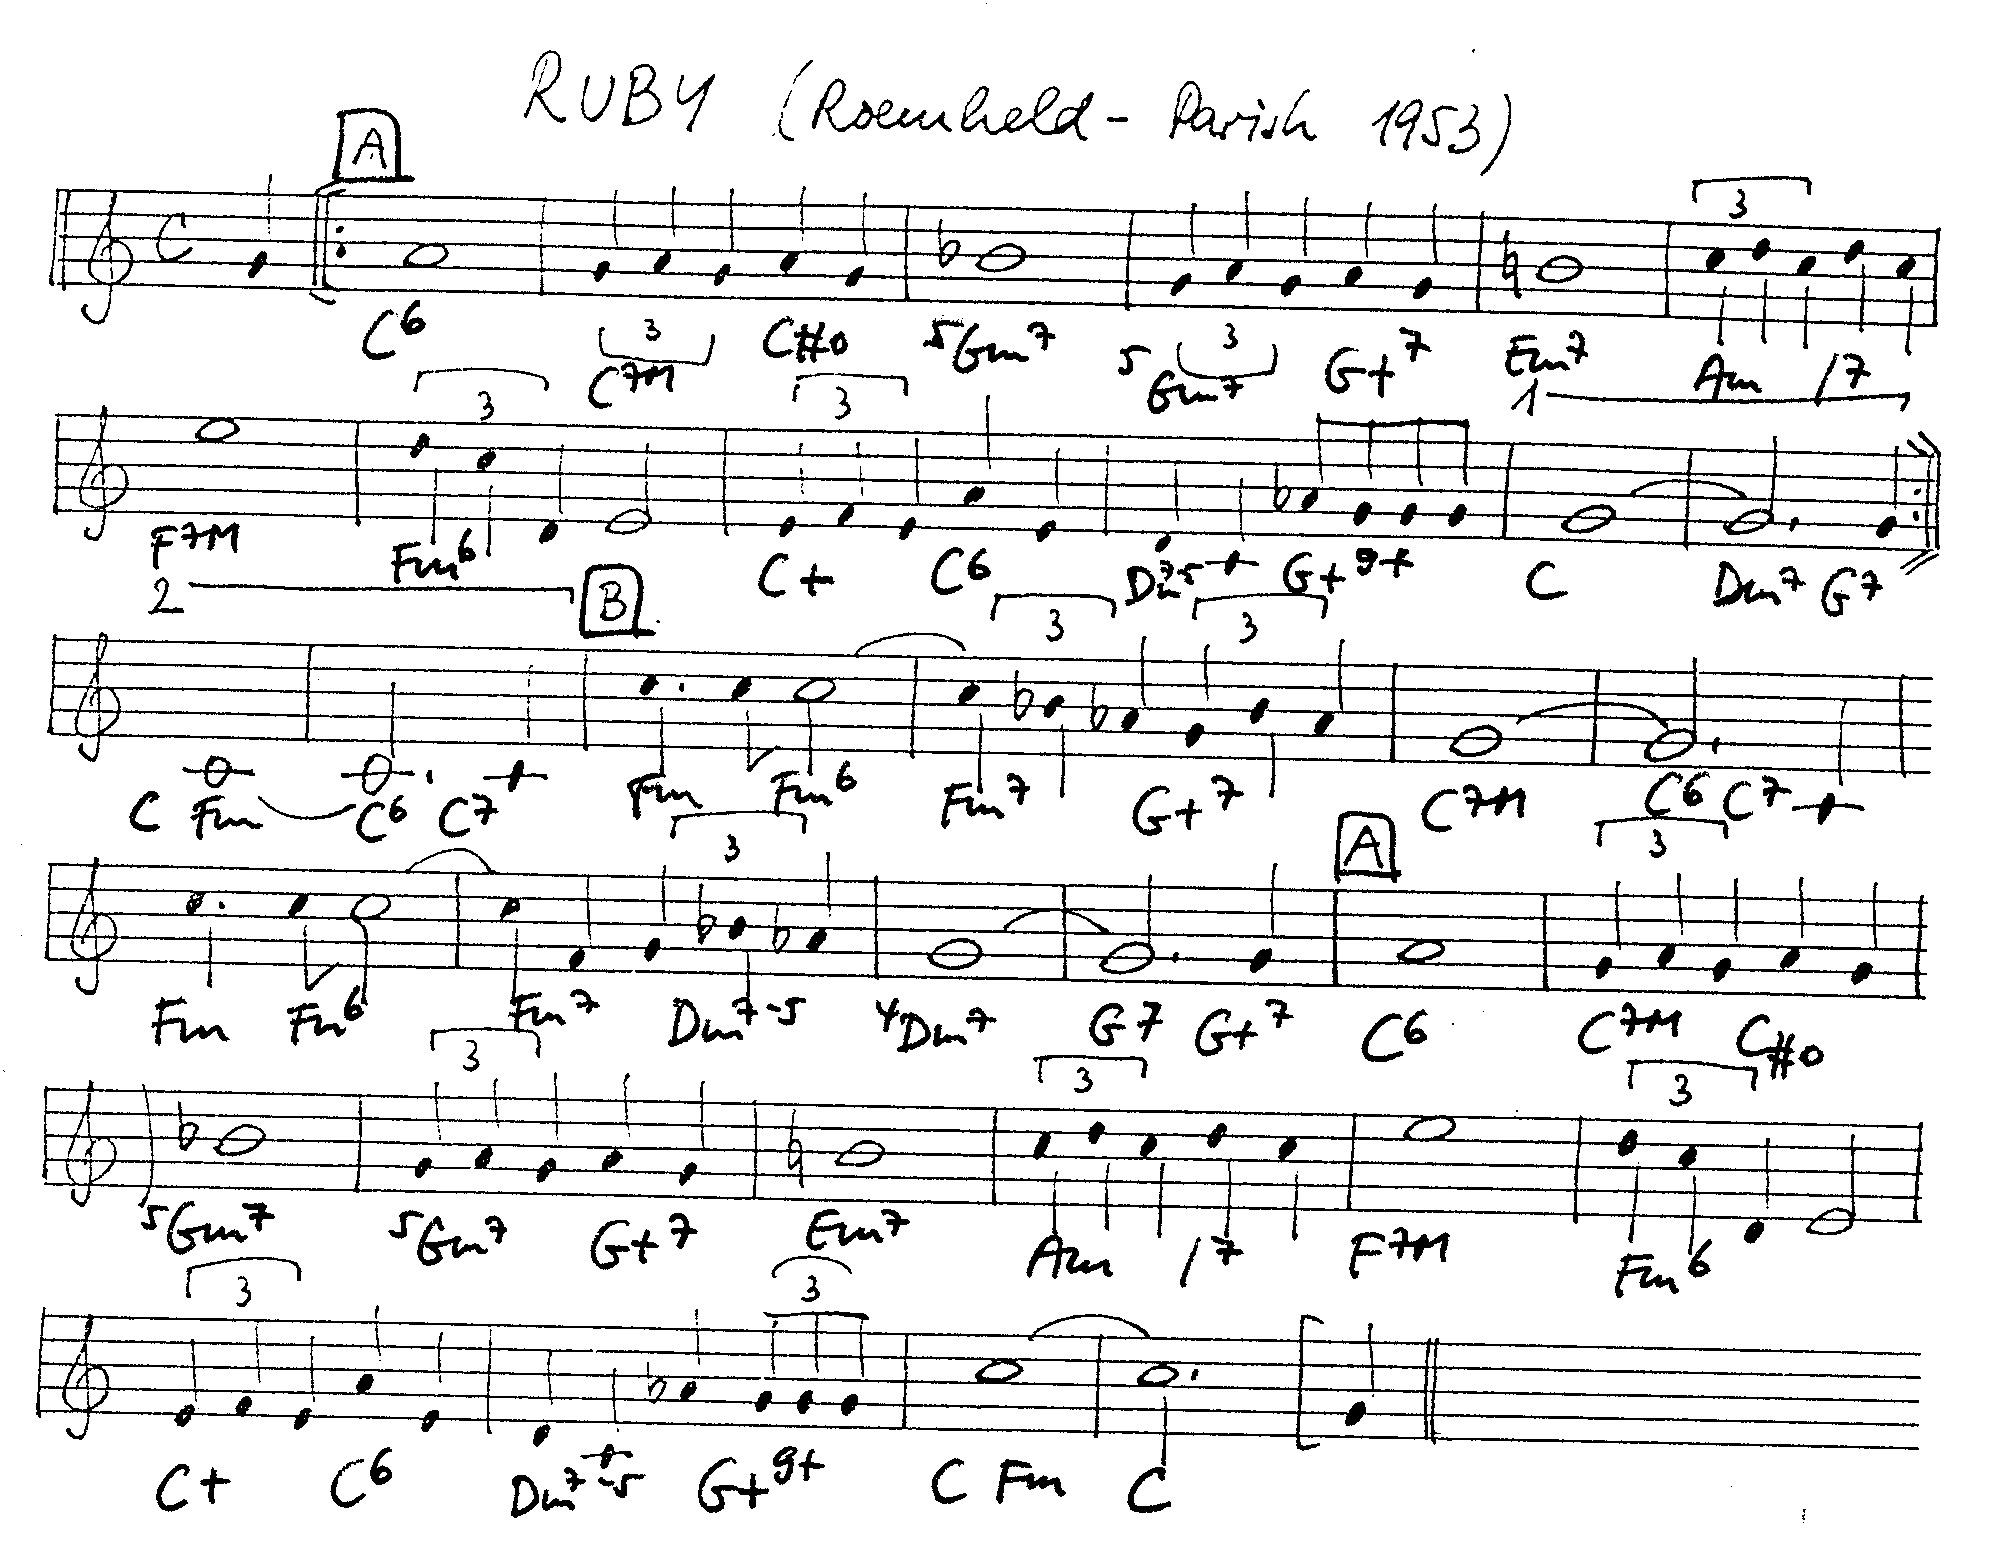 RUBY (Roemheld - Parish 1953)
A
3
C6 3 C7M C#o 5Gm7 5 Gm7 3 G+7 Em7 Am /7
3 3 1
F7M Fm6 C+ C6 Dm7-5 G+9+ C Dm7 G7
2 B 3 3
C Fm C6 C7 Fm Fm6 Fm7 G+7 C7M C6 C7
3 A 3
Fm Fm6 Fm7 Dm7-5 4Dm7 G7 G+7 C6 C7M C#o
3 3 3
5Gm7 5Gm7 G+7 Em7 Am /7 F7M Fm6
3 3
C+ C6 Dm7-5 G+9+ C Fm C